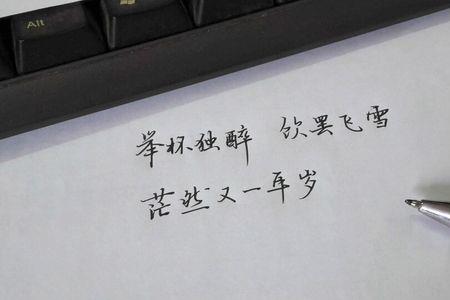 Alt
举杯独醉 饮罢飞雪
茫然又一年岁